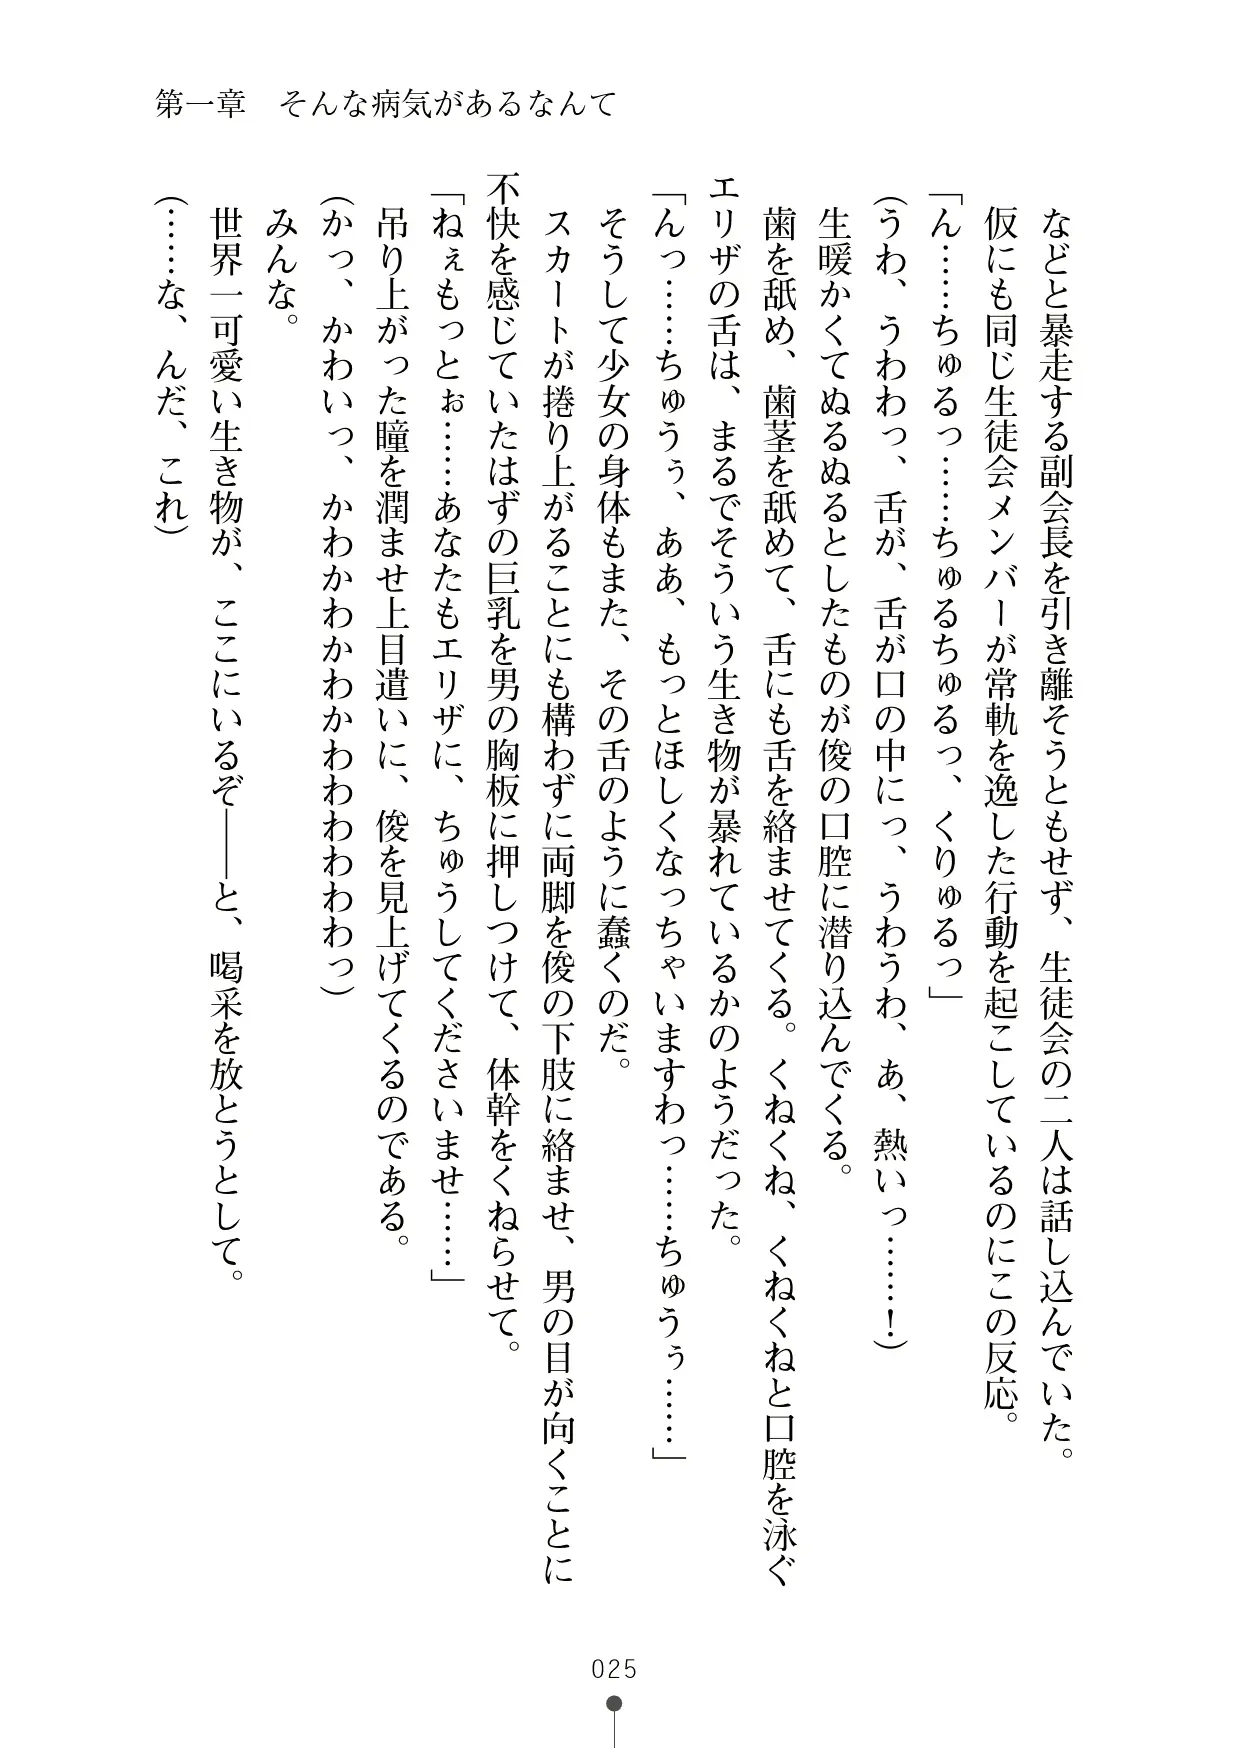 第一章　そんな病気があるなんて
などと暴走する副会長を引き離そうともせず、生徒会の二人は話し込んでいた。
仮にも同じ生徒会メンバーが常軌を逸した行動を起こしているのにこの反応。
「ん……ちゅるっ……ちゅるちゅるっ、くりゅるっ」
(うわ、うわわっ、舌が、舌が口の中にっ、うわうわ、あ、熱いっ……！)
生暖かくてぬるぬるとしたものが俊の口腔に潜り込んでくる。
歯を舐め、歯茎を舐めて、舌にも舌を絡ませてくる。くねくね、くねくねと口腔を泳ぐ
エリザの舌は、まるでそういう生き物が暴れているかのようだった。
「んっ……ちゅうぅ、ああ、もっとほしくなっちゃいますわっ……ちゅうぅ……」
そうして少女の身体もまた、その舌のように蠢くのだ。
スカートが捲り上がることにも構わずに両脚を俊の下肢に絡ませ、男の目が向くことに
不快を感じていたはずの巨乳を男の胸板に押しつけて、体幹をくねらせて。
「ねぇもっとぉ……あなたもエリザに、ちゅうしてくださいませ……」
吊り上がった瞳を潤ませ上目遣いに、俊を見上げてくるのである。
(かっ、かわいっ、かわかわかわかわわわわわわっ)
みんな。
世界一可愛い生き物が、ここにいるぞ――と、喝采を放とうとして。
(……な、んだ、これ)
025